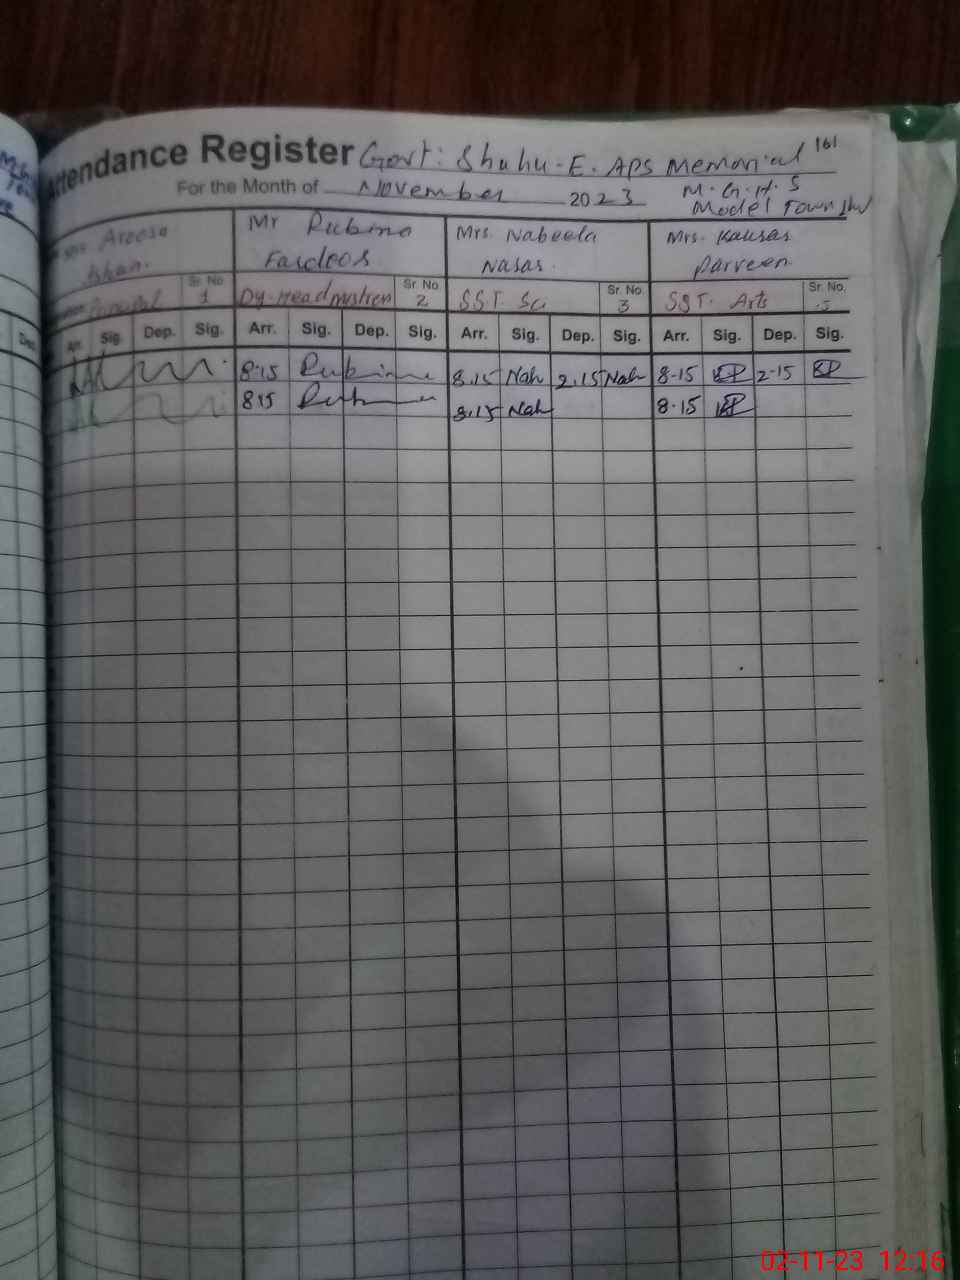 Attendance Register Govt: Shuhu-E. APS Memorial 161
For the Month of November 2023 M.G.H.S
Model Town
Areesa Mr Rubina Mrs. Nabeela Mrs. Kausar
Khan. Fardoos Nasar. Parveen
Principal Sr. No 1 Dy-Headmistren Sr. No 2 SST. Sc Sr. No 3 SST. Arts Sr. No.
Arr. Sig. Dep. Sig. Arr. Sig. Dep. Sig. Arr. Sig. Dep. Sig. Arr. Sig. Dep. Sig.
8.15 Rubina 8.15 Nah 2.15 Nah 8-15 KP 2-15 KP
815 8.15 Nah 8.15 KP
02-11-23 12:16